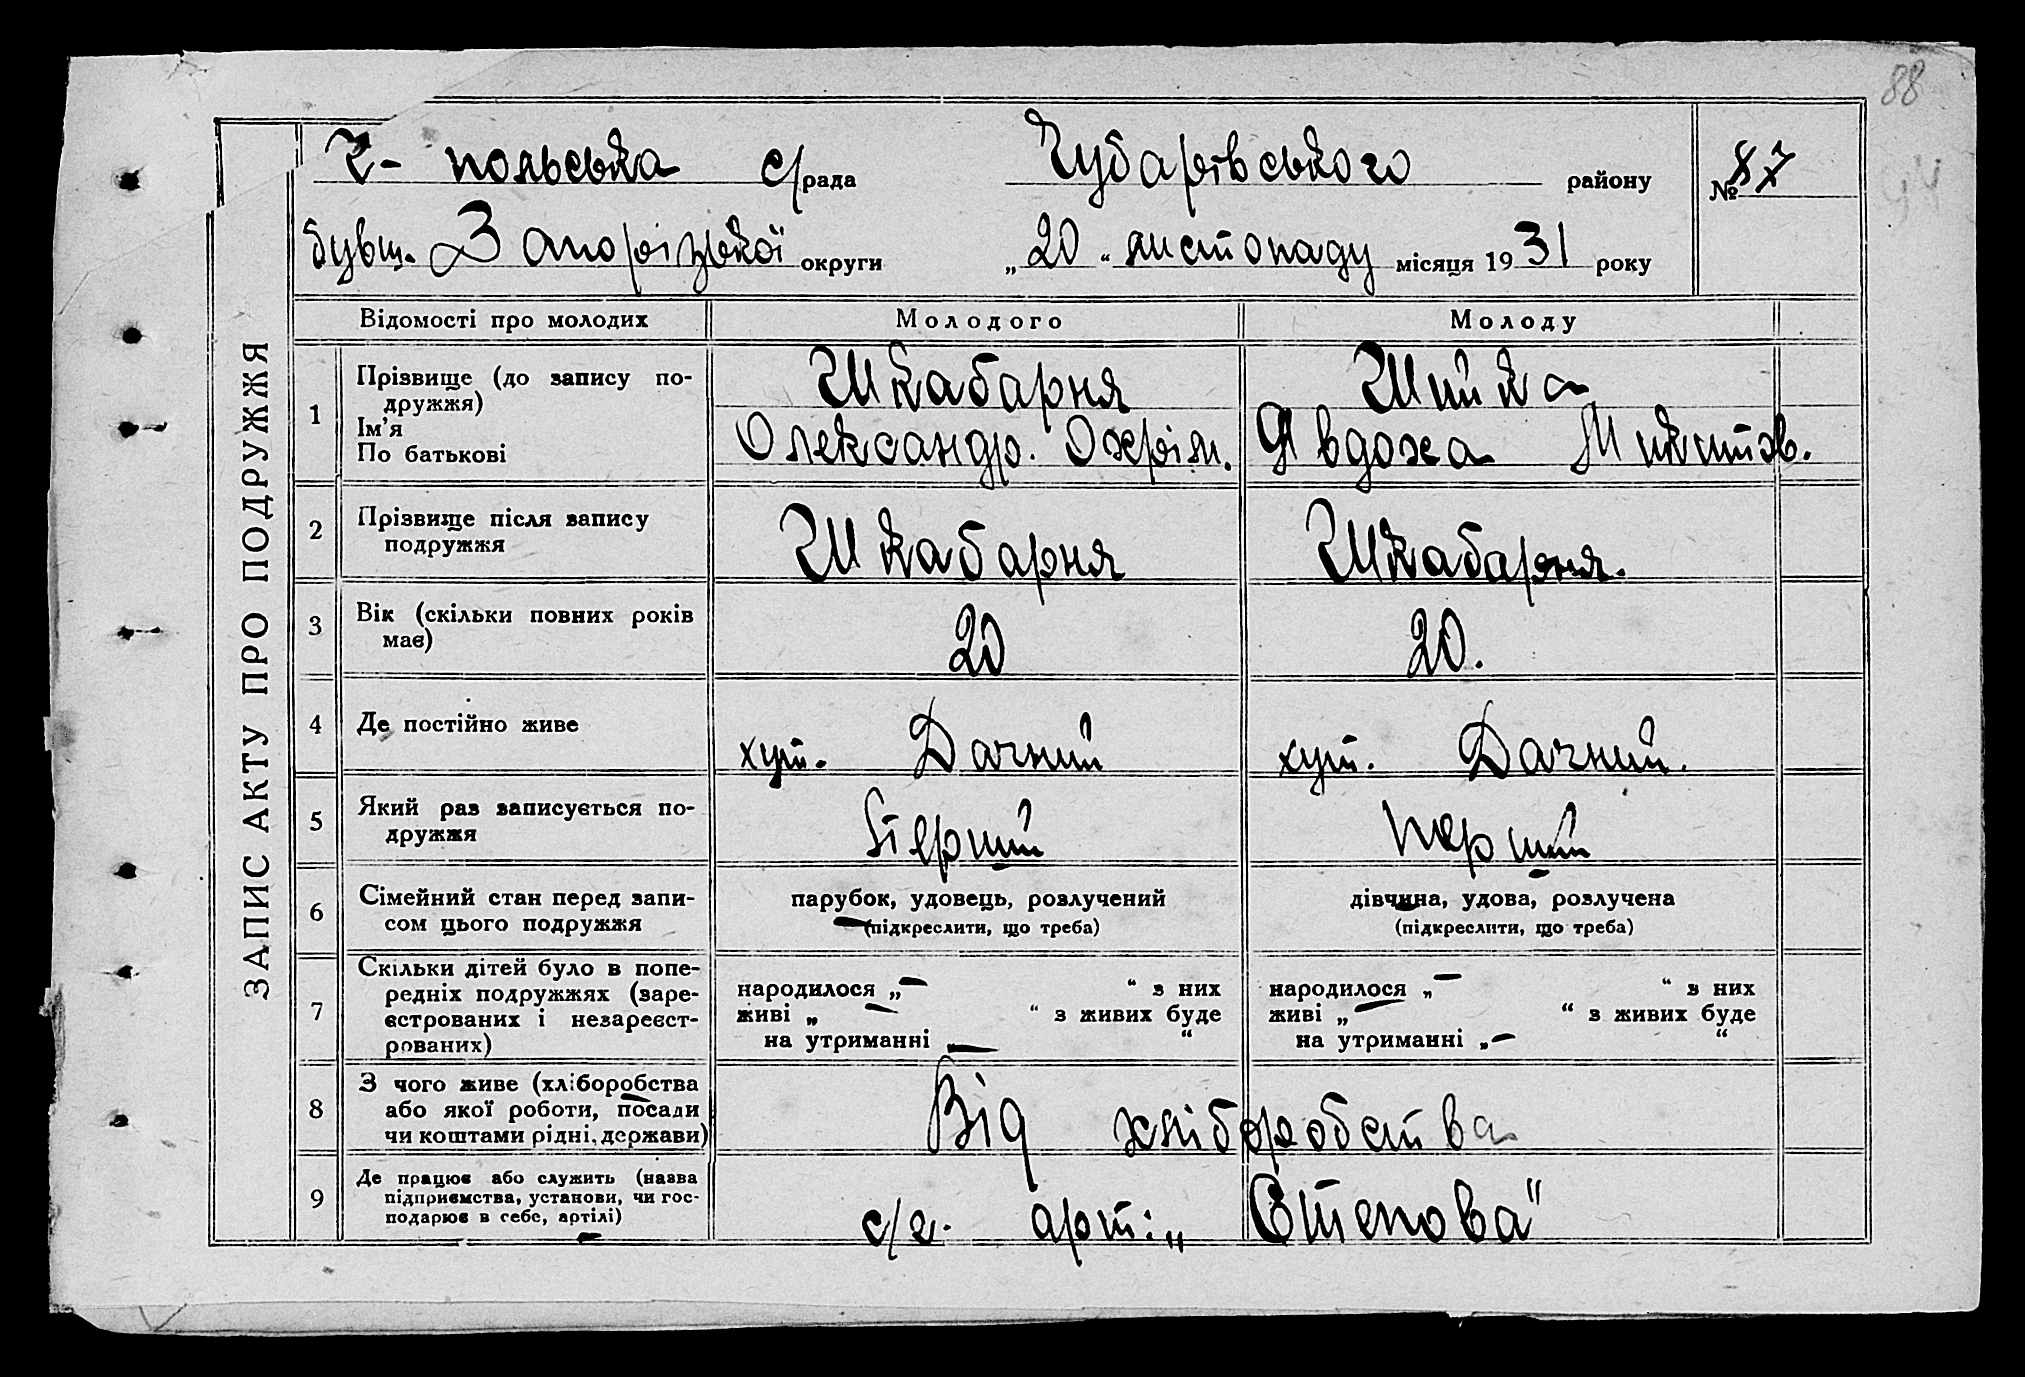 88
Ч- польська с/рада Чубарівського району № 87
бувш. Запорізької округи „20“ листопаду місяця 1931 року
ЗАПИС АКТУ ПРО ПОДРУЖЖЯ
Відомості про молодих Молодого Молоду
1 Прізвище (до запису по-
дружжя)
Ім’я
По батькові
Шкабарня
Олександр. Охрім.
Шийка
Явдоха Микитов.
2 Прізвище після запису
подружжя
Шкабарня Шкабарня.
3 Вік (скільки повних років
має)
20 20.
4 Де постійно живе хут. Дачний хут. Дачний.
5 Який раз записується по-
дружжя
Перший перший
6 Сімейний стан перед запи-
сом цього подружжя
парубок, удовець, розлучений
(підкреслити, що треба)
дівчина, удова, розлучена
(підкреслити, що треба)
7 Скільки дітей було в попе-
редніх подружжях (заре-
єстрованих і незареєст-
рованих)
народилося „— “ з них
живі „— “ з живих буде
на утриманні — “
народилося „— “ з них
живі „— “ з живих буде
на утриманні „— “
8 З чого живе (хліборобства
або якої роботи, посади
чи коштами рідні, держави)
Від хліборобства
9 Де працює або служить (назва
підприємства, установи, чи гос-
подарює в себе, артілі)
с/г. арт: „Степова“